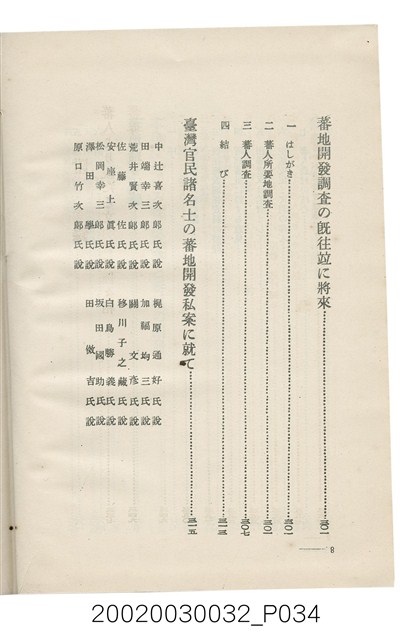 蕃地開發調査の既往竝に將來……三〇一
一 はしがき……三〇一
二 蕃人所要地調査……三〇一
三 蕃人調査……三〇七
四 結び……三一三
臺灣官民諸名士の蕃地開發私案に就て……三一五
中辻喜次郎氏說 梶原通好氏說
田端幸三郎氏說 加福均三氏說
荒井賢次郎氏說 關文彦氏說
佐藤佐氏說 移川子之藏氏說
安座上眞氏說 白鳥勝義氏說
松岡幸三郎氏說 坂田國助氏說
澤田學氏說 田微吉氏說
原口竹次郎氏說
8
20020030032_P034